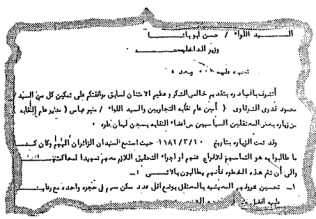 السيد اللواء / حسن أبو باشا
وزير الداخلية
تحية طيبة وبعد ،
أتشرف بأن أتقدم بخالص الشكر و عظيم الامتنان لسابق موافقتكم على تمكين كل من السيد /
محمود قدري الشرقاوي ( أمين عام نقابة التجاريين والسيد اللواء / منير عباس ( مدير عام النقابة
من زيارة بعض المعتقلين السياسيين من أعضاء النقابة بسجن ليمان طره
وقد تمت الزيارة بتاريخ ١٩٨٢/٢/١٠ حيث استمع السيدان الزائران
ما طالبوا به هو التماسهم للافراج عنهم أو اجراء التحقيق اللازم معهم تمهيدا لمحاكمتهم
والى أن تتم هذه الخطوة فانهم يطالبون بالآتي :
١ـ تحسين ظروفهم المعيشية بالمعتقل بوضع أقل عدد ممكن منهم في حجرة واحدة مع